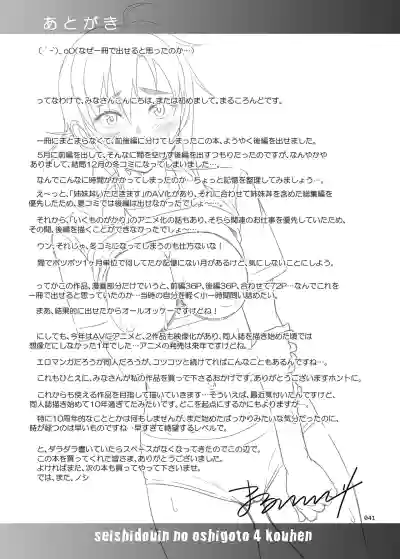 あとがき
(´-`)。oO(なぜ一冊で出せると思ったのか…)
ってなわけで、みなさんこんにちは、または初めまして、まるころんどです。
一冊にまとまらなくて、前後編に分けてしまったこの本、ようやく後編を出せました。
5月に前編を出して、そんなに間を空けず後編を出すつもりだったのですが、なんやかや
ありまして、結局12月の冬コミになってしまいました…。
なんでこんなに時間がかかってしまったのか…ちょっと記憶を整理してみましょう…。
え～っと、「姉妹丼いただきます」のAV化があり、それに合わせて姉妹丼を含めた総集編を
優先したため、夏コミでは後編は出せなかったんですよね…。
それから、「いくものがかり」のアニメ化の話もあり、そちら関連のお仕事を優先していたため、
その間、後編を描くことができなかったんですよ…。
ウン、それじゃ、冬コミになってしまうのも仕方ないな!
間でポツポツ1ヶ月単位で何してたか記憶にない月があるけど、気にしないことにしよう。
ってかこの作品、漫画部分だけでいうと、前編36P、後編36P、合わせて72P…なんでこれを
一冊で出せると思っていたのか…当時の自分を軽く小一時間問い詰めたい。
まあ、結果的に出せたからオールオッケーですけどね!
にしても、今年はAVにアニメと、2作品も映像化があり、同人誌を描き始めた頃では
想像だにしなかった1年でした…アニメの発売は来年ですけどね。
エロマンガだろうが同人だろうが、コツコツと続けてればこんなこともあるんですね…。
これもひとえに、みなさんが私の作品を買って下さるおかげです、ありがとうございますホントに。
これからも使える作品を目指して描いていきます…そういえば、最近気付いたんですけど、
同人誌描き始めて10年過ぎてたみたいです、どこを起点にするかにもよりますが…。
特に10周年的なこととかは何もしませんが、まだ始めたばっかりみたいな気分だったのに、
時が経つのは早いものですね…早すぎて絶望するレベルで。
と、ダラダラ書いていたらスペースがなくなってきたのでこの辺で。
この本を買ってくれた皆さま、ありがとうございました。
よければまた、次の本も買ってやって下さいませ。
では、また、ノシ
041
seishidouin no oshigoto 4 kouhen